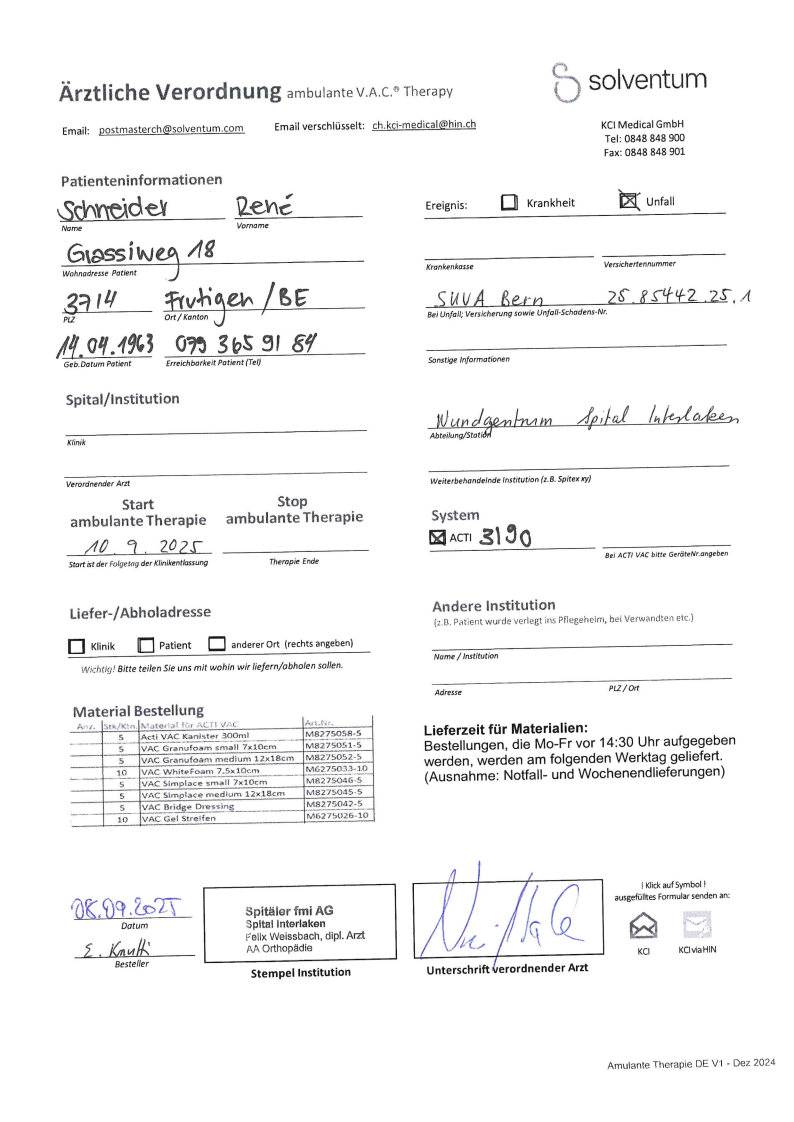 Ärztliche Verordnung ambulante V.A.C.® Therapy
solventum
Email: postmasterch@solventum.com Email verschlüsselt: ch.kci-medical@hin.ch
KCI Medical GmbH
Tel: 0848 848 900
Fax: 0848 848 901
Patienteninformationen
Schneider René
Name Vorname
Ereignis: Krankheit Unfall
Wohnadresse Patient
Krankenkasse Versichertennummer
3714 Frutigen / BE
PLZ Ort / Kanton
SUVA Bern 25.85442.25.1
Bei Unfall; Versicherung sowie Unfall-Schadens-Nr.
14.04.1963 079 365 91 84
Geb.Datum Patient Erreichbarkeit Patient (Tel)
Sonstige Informationen
Spital/Institution
Klinik
Wundzentrum Spital Interlaken
Abteilung/Station
Verordnender Arzt
Weiterbehandelnde Institution (z.B. Spitex xy)
Start ambulante Therapie
Stop ambulante Therapie
10. 9. 2025
Start ist der Folgetag der Klinikentlassung Therapie Ende
System
ACTI 3190
Bei ACTI VAC bitte GeräteNr.angeben
Liefer-/Abholadresse
Klinik Patient anderer Ort (rechts angeben)
Wichtig! Bitte teilen Sie uns mit wohin wir liefern/abholen sollen.
Andere Institution
(z.B. Patient wurde verlegt ins Pflegeheim, bei Verwandten etc.)
Name / Institution
Adresse PLZ / Ort
Material Bestellung
Anz. Stk/Ktn. Material für ACTI VAC Art.Nr.
5 Acti VAC Kanister 300ml M8275058-5
5 VAC Granufoam small 7x10cm M8275051-5
5 VAC Granufoam medium 12x18cm M8275052-5
10 VAC WhiteFoam 7.5x10cm M6275033-10
5 VAC Simplace small 7x10cm M8275046-5
5 VAC Simplace medium 12x18cm M8275045-5
5 VAC Bridge Dressing M8275042-5
10 VAC Gel Streifen M6275026-10
Lieferzeit für Materialien:
Bestellungen, die Mo-Fr vor 14:30 Uhr aufgegeben
werden, werden am folgenden Werktag geliefert.
(Ausnahme: Notfall- und Wochenendlieferungen)
08.09.2025
Datum
E.
Besteller
Spitäler fmi AG
Spital Interlaken
Felix Weissbach, dipl. Arzt
AA Orthopädie
Stempel Institution
Unterschrift verordnender Arzt
! Klick auf Symbol !
ausgefülltes Formular senden an:
KCI KCI via HIN
Amulante Therapie DE V1 - Dez 2024